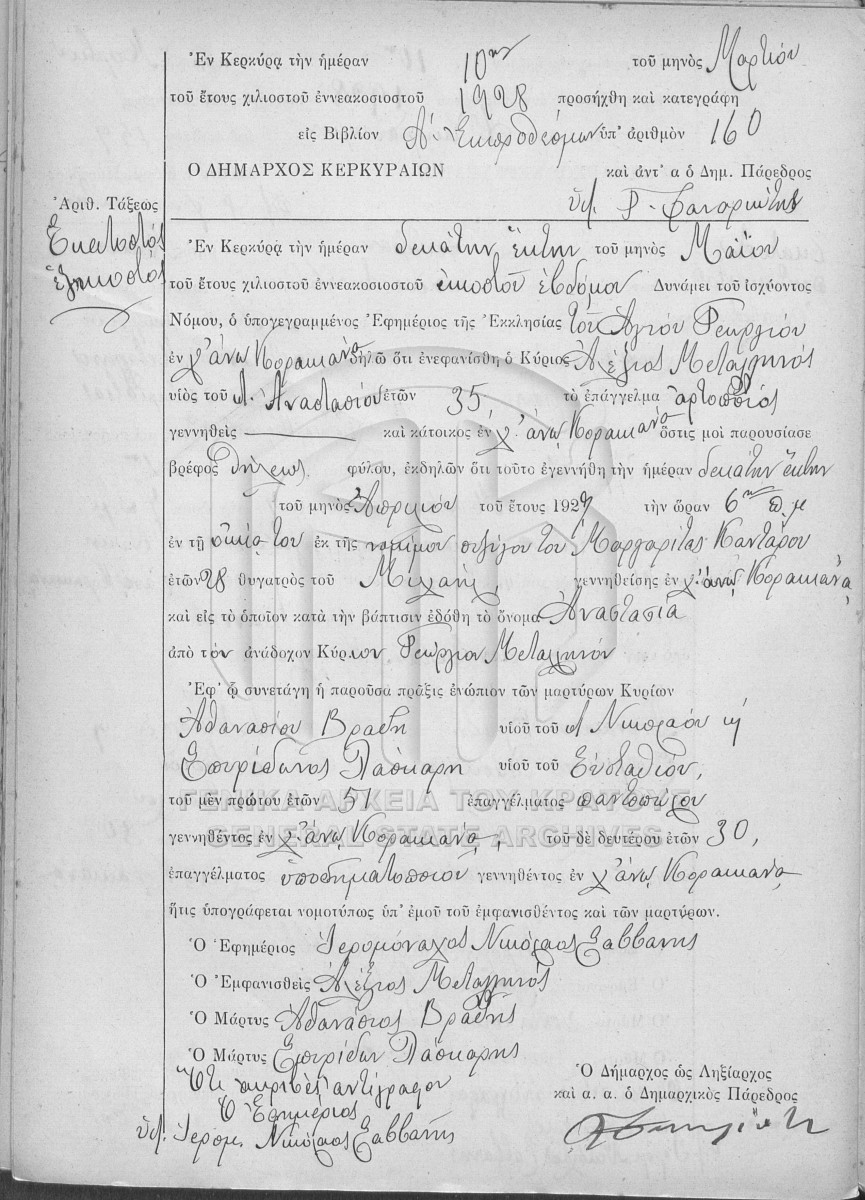 Ἐν Κερκύρᾳ τὴν ἡμέραν 10ην τοῦ μηνὸς Μαρτίου
τοῦ ἔτους χιλιοστοῦ ἐννεακοσιοστοῦ 1928 προσήχθη καὶ κατεγράφη
εἰς Βιβλίον Α΄ Ἐκπροθέσμων ὑπ' ἀριθμὸν 160
Ο ΔΗΜΑΡΧΟΣ ΚΕΡΚΥΡΑΙΩΝ καὶ ἀντ' α ὁ Δημ. Πάρεδρος
Ἀριθ. Τάξεως
Ἑκατοστὸς
ἑξηκοστὸς
Ἐν Κερκύρᾳ τὴν ἡμέραν δεκάτην ἕκτην τοῦ μηνὸς Μαΐου
τοῦ ἔτους χιλιοστοῦ ἐννεακοσιοστοῦ εἰκοστοῦ ἑβδόμου Δυνάμει τοῦ ἰσχύοντος
Νόμου, ὁ ὑπογεγραμμένος Ἐφημέριος τῆς Ἐκκλησίας τοῦ Ἁγίου Γεωργίου
ἐν χ. ἄνω Κορακιάνα δηλῶ ὅτι ἐνεφανίσθη ὁ Κύριος Ἀλέξιος Μεταλληνός
υἱὸς τοῦ Ἀναστασίου ἐτῶν 35, τὸ ἐπάγγελμα ἀρτοποιός
γεννηθεὶς καὶ κάτοικος ἐν χ. ἄνω Κορακιάνα ὅστις μοι παρουσίασε
βρέφος θήλεως φύλου, ἐκδηλῶν ὅτι τοῦτο ἐγεννήθη τὴν ἡμέραν δεκάτην ἕκτην
τοῦ μηνὸς Ἀπριλίου τοῦ ἔτους 1927 τὴν ὥραν 6ην π.μ
ἐν τῇ οἰκίᾳ του ἐκ τῆς νομίμου συζύγου του Μαργαρίτας Καντάρου
ἐτῶν 28 θυγατρὸς τοῦ Μιχαὴλ, γεννηθείσης ἐν χ. ἄνω Κορακιάνα
καὶ εἰς τὸ ὁποῖον κατὰ τὴν βάπτισιν ἐδόθη τὸ ὄνομα Ἀναστασία
ἀπὸ τὸν ἀνάδοχον Κύριον Γεώργιον Μεταλληνόν
Ἐφ' ᾧ συνετάγη ἡ παροῦσα πρᾶξις ἐνώπιον τῶν μαρτύρων Κυρίων
Ἀθανασίου Βραδῆ υἱοῦ τοῦ Νικολάου
Σπυρίδωνος Λάσκαρη υἱοῦ τοῦ Εὐσταθίου,
τοῦ μὲν πρώτου ἐτῶν 51 ἐπαγγέλματος παντοπώλου
ΓΕΝΙΚΑ ΑΡΧΕΙΑ ΤΟΥ ΚΡΑΤΟΥΣ
GENERAL STATE ARCHIVES
γεννηθέντος ἐν χ. ἄνω Κορακιάνα, τοῦ δὲ δευτέρου ἐτῶν 30,
ἐπαγγέλματος ὑποδηματοποιοῦ γεννηθέντος ἐν χ. ἄνω Κορακιάνα
ἥτις ὑπογράφεται νομοτύπως ὑπ' ἐμοῦ τοῦ ἐμφανισθέντος καὶ τῶν μαρτύρων.
Ὁ Ἐφημέριος Ἱερομόναχος Νικόλαος Σαββανης
Ὁ Ἐμφανισθεὶς Ἀλέξιος Μεταλληνός
Ὁ Μάρτυς Ἀθανάσιος Βραδῆς
Ὁ Μάρτυς Σπυρίδων Λάσκαρης
Ὅτι ἀκριβὲς ἀντίγραφον
Ὁ Ἐφημέριος
ὑπ. Ἱερομ. Νικόλαος Σαββανης
Ὁ Δήμαρχος ὡς Ληξίαρχος
καὶ α. α. ὁ Δημαρχικὸς Πάρεδρος